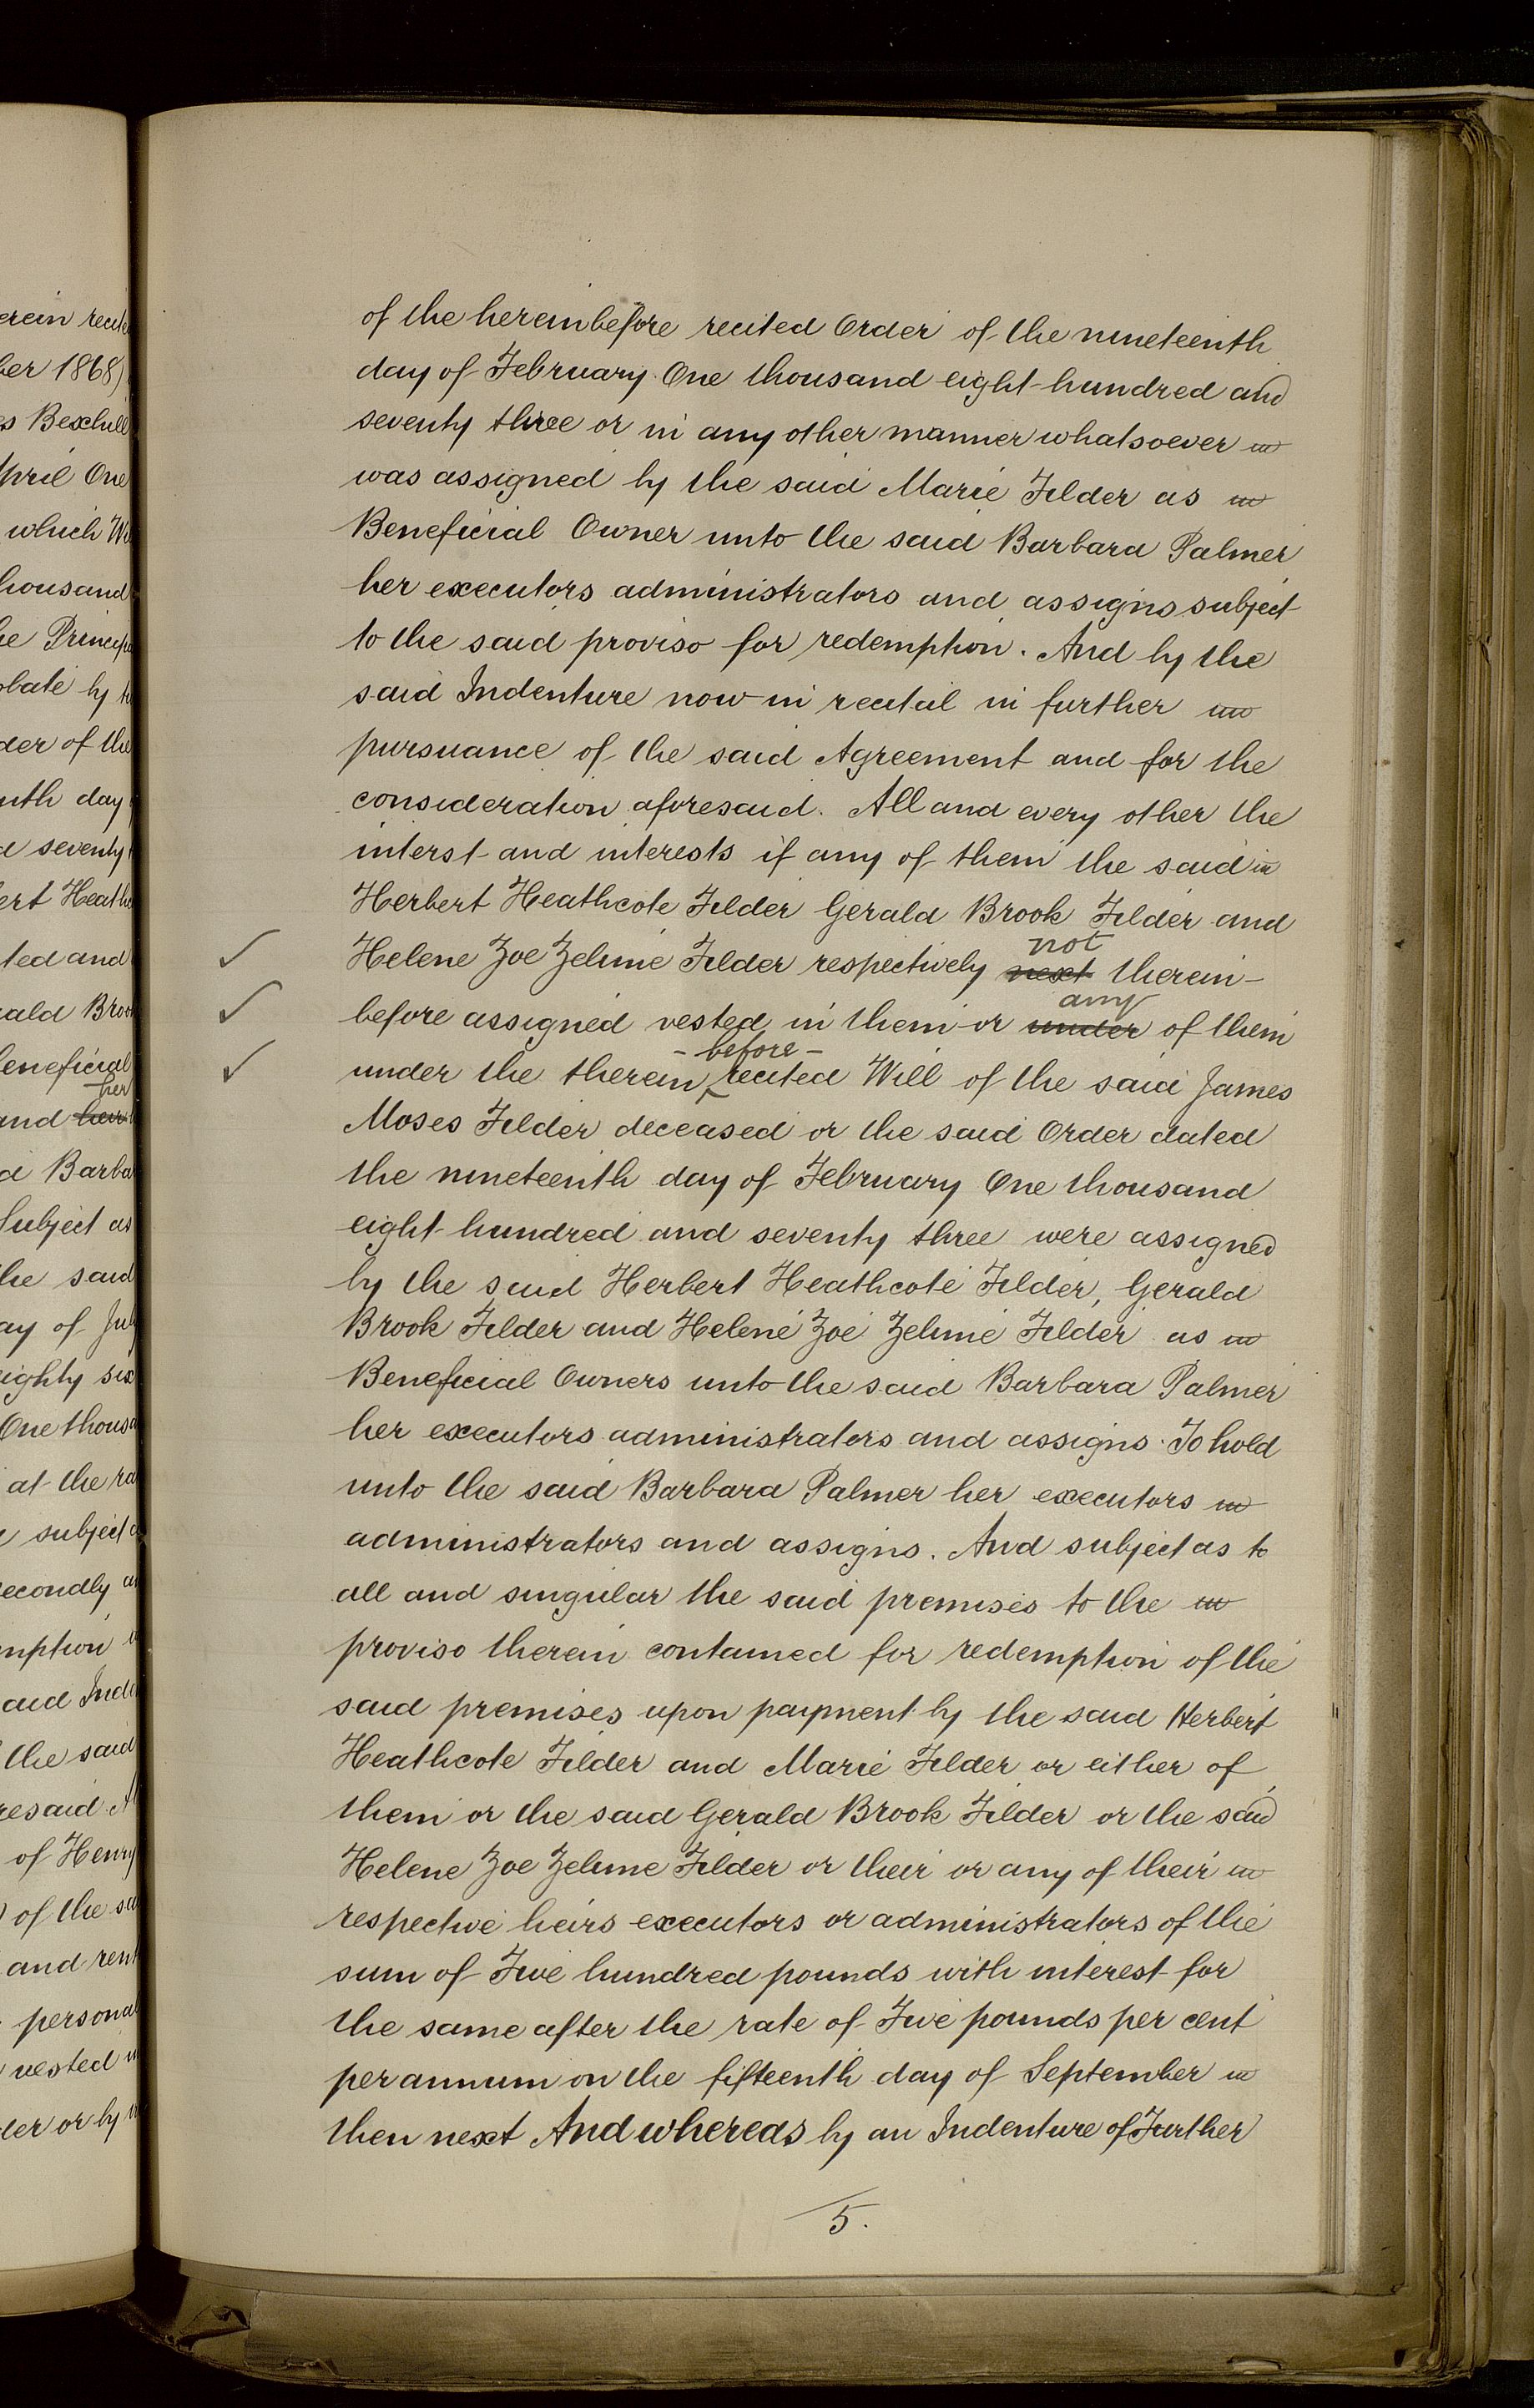 erein recite
ber 1868)
s Bexhill
April One
which Wi
housand
he Princip
obate by
der of the
nth day
d seventy
ert Heath
ted and
rald Broo
Beneficial
her
and heir
d Barba
Subject as
the said
ay of July
eighty six
One thousa
at the ra
subject
secondly a
mption
aid Inde
the said
resaid A
of Henry
of the sa
and rent
personal
vested in
der or by
of the hereinbefore recited Order of the nineteenth
day of February One thousand eight hundred and
seventy three or in any other manner whatsoever
was assigned by the said Marie Felder as
Beneficial Owner unto the said Barbara Palmer
her executors administrators and assigns subject
to the said proviso for redemption. And by the
said Indenture now in recital in further
pursuance of the said Agreement and for the
consideration aforesaid. All and every other the
interst and interests if any of them the said
Herbert Heathcote Felder Gerald Brook Felder and
not
Helene Zoe Zelime Felder respectively next therein-
any
before assigned vested in them or under of them
- before -
under the therein recited Will of the said James
Moses Felder deceased or the said Order dated
the nineteenth day of February One thousand
eight hundred and seventy three were assigned
by the said Herbert Heathcote Felder, Gerald
Brook Felder and Helene Zoe Zelime Felder as
Beneficial Owners unto the said Barbara Palmer
her executors administrators and assigns. To hold
unto the said Barbara Palmer her executors
administrators and assigns. And subject as to
all and singular the said premises to the
proviso therein contained for redemption of the
said premises upon payment by the said Herbert
Heathcote Felder and Marie Felder or either of
them or the said Gerald Brook Felder or the said
Helene Zoe Zelime Felder or their or any of their
respective heirs executors or administrators of the
sum of Five hundred pounds with interest for
the same after the rate of Five pounds per cent
per annum on the fifteenth day of September
then next And whereas by an Indenture of Further
5.